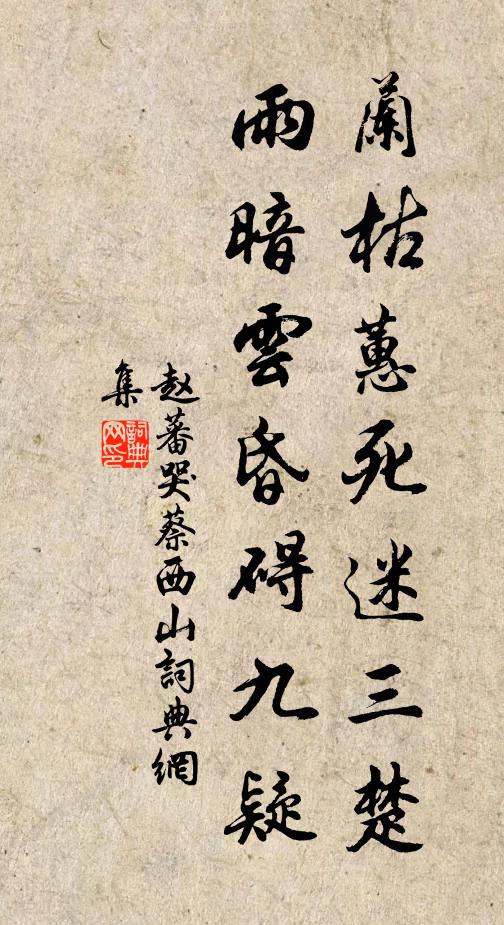 蘭枯蕙死迷三楚
雨暗雲昏碍九疑
赵蕃哭蔡西山詞典網
集
詞典
网印